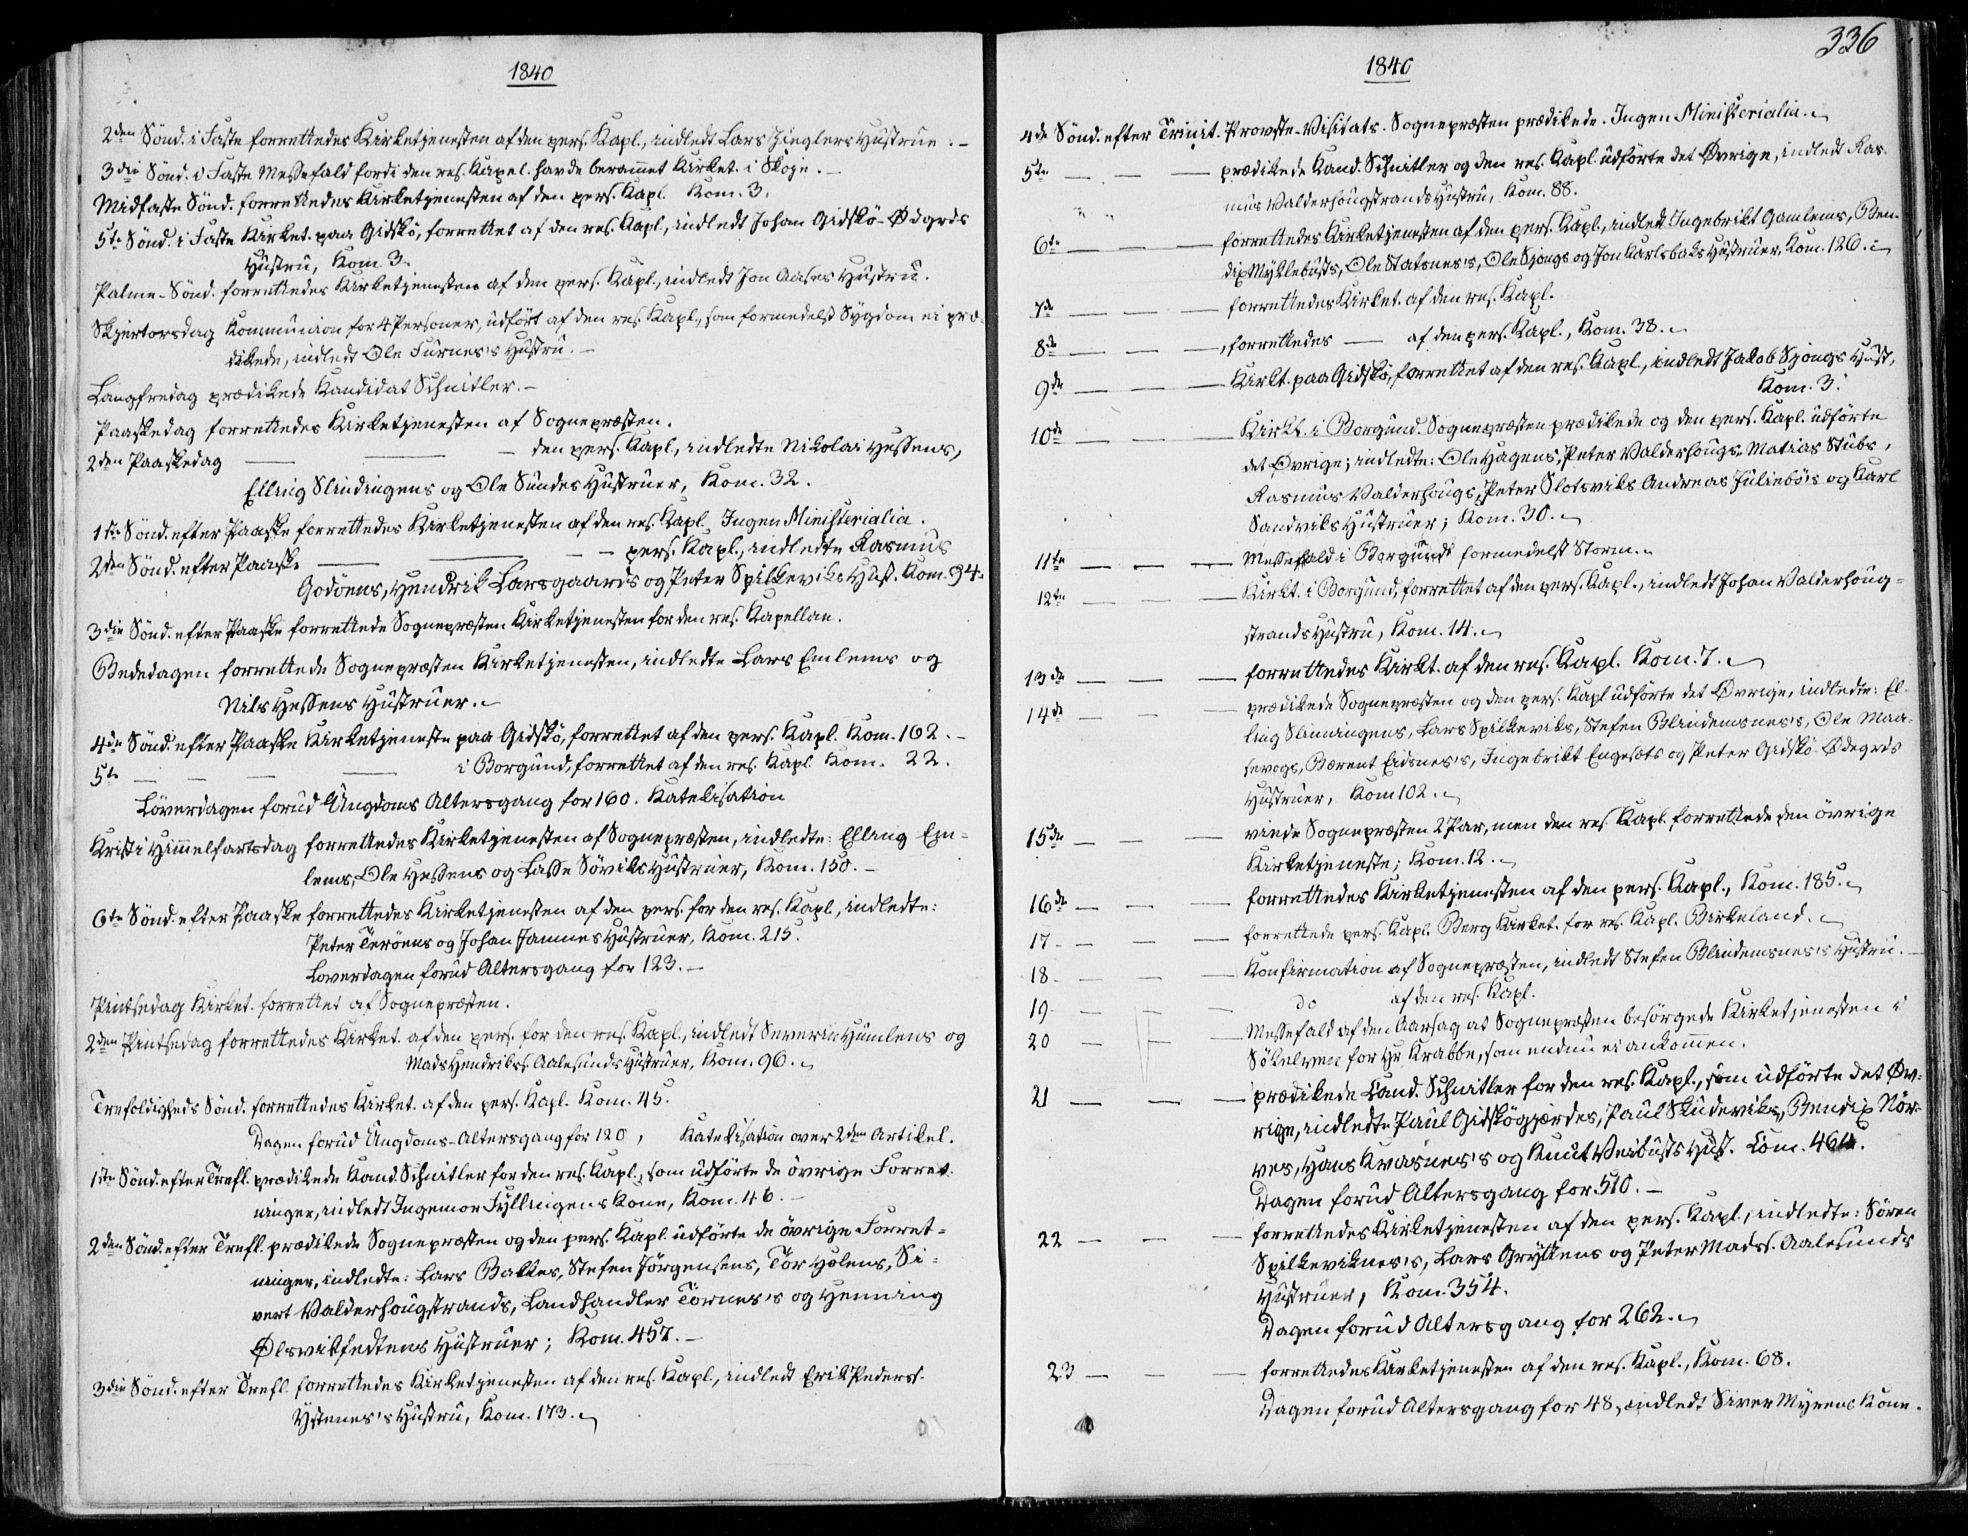 1840
2den Sönd. i Faste forrettedes Kirketjenesten af den pers. Kapl., indledt Lars Zieglers Hustrue. –
3die Sönd. i Faste Messefald fordi den res. Kapel. havde berammet Kirket. i Skoje. –
Midfaste Sönd. forrettedes Kirketjenesten af den pers. Kapl. Kom. 3.
5te Sönd. i Faste Kirket. paa Gidskö, forrettet af den res. Kapl., indledt Johan Gidskö-Ödegrds
Hustru, Kom 3.
Palme-Sönd. forrettedes Kirketjenesten af den pers. Kapl., indledt Jon Aases Hustru.
Skjertorsdag Kommunion for 4 Personer, udfört af den res. Kapl., som formedelst Sygdom ei præ-
dikede, indledt Ole Furnes's Hustru. –
Langfredag prædikede Kandidat Schnitler. –
Paaskedag forrettedes Kirketjenesten af Sognepræsten.
2den Paaskedag — — – den pers. Kapl, indledte Nikolai Hessens,
Elling Slindingens og Ole Sundes Hustruer, Kom. 32.
1ste Sönd. efter Paaske forrettedes Kirketjenesten af den res. Kapl. Ingen Ministerialia.
2den Sönd. efter Paaske — — – – pers. Kapl., indledte Rasmus
Godöens, Hendrik Larsgaards og Peter Spilkeviks Hust. Kom. 94.
3die Sönd. efter Paaske forrettede Sognepræsten Kirketjenesten for den res. Kapellan.
Bededagen forrettede Sognepræsten Kirketjenesten, indledte Lars Emlems og
Nils Hessens Hustruer. –
4de Sönd. efter Paaske Kirketjeneste paa Gidskö, forrettet af den pers. Kapl. Kom. 162. –
5te — — — — i Borgund, forrettet af den res. Kapl. Kom. 22.
Löverdagen forud Ungdoms Altersgang for 160. Katekisation
Kristi Himmelfartsdag forrettedes Kirketjenesten af Sognepræsten, indledte: Elling Em-
lems, Ole Hessens og Lasse Söviks Hustruer, Kom. 150. –
6te Sönd. efter Paaske forrettedes Kirketjenesten af den pers. for den res. Kapl, indledte:
Peter Teröens og Johan Jamnes Hustruer, Kom. 215.
Loverdagen forud Altersgang for 123. –
Pintsedag Kirket. forrettet af Sognepræsten.
2den Pintsedag forrettedes Kirket. af den pers. for den res. Kapl., indledt Severin Humlens og
Mads Hendrikss. Aalesunds Hustruer, Kom. 96. –
Trefoldigheds Sönd. forrettedes Kirket. af den pers. Kapl. Kom. 45.
Dagen forud Ungdoms-Altersgang for 120, Katekisation over 2den Artikel.
1ste Sönd. efter Trefl. prædikede Kand. Schnitler for den res. Kapl., som udförte de övrige Forret-
ninger, indledt Ingemor Fyllingens Kone, Kom. 46. –
2den Sönd. efter Trefl. prædikede Sognepræsten og den pers. Kapl. udförte de övrige Forret-
ninger, indledte: Lars Bakkes, Stefen Jörgensens, Tor Holens, Si-
vert Valderhougstrands, Landhandler Törnes's og Henning
Ölsvikfedtens Hustruer; Kom. 457. –
3die Sönd. efter Trefl. forrettedes Kirketjenesten af den res. Kapl., indledt Erik Pederss.
Ystenes's Hustru, Kom. 173. –
336
1840
4de Sönd. efter Trinit. Provste-Visitats. Sognepræsten prædikede. Ingen Ministerialia. –
5te — — — prædikede Kand. Schnitler og den res. Kapl. udförte det Övrige, indledt Ras-
mus Valderhougstrands Hustru, Kom. 88.
6te — — — forrettedes Kirketjenesten af den pers. Kapl., indledt Ingebrikt Gamlems, Ben-
dix Myklebusts, Ole Statsnes's, Ole Sjongs og Jon Karlsbaks Hustruer, Kom. 126. –
7de — — — forrettedes Kirket. af den res. Kapl.
8de — — — , forrettedes — af den pers. Kapl., Kom. 38. –
9de — — — Kirkt. paa Gidskö, forrettet af den res. Kapl, indledt Jakob Sjongs Hust,
Kom. 3.
10de — — — Kirkt. i Borgund. Sognepræsten prædikede og den pers. Kapl. udförte
det Övrige; indledte: Ole Hagens, Peter Valderhougs, Matias Stubs,
Rasmus Valderhougs, Peter Slotsviks Andreas Juliebö's og Karl
Sandviks Hustruer; Kom. 30. –
11te — — — Messefald i Borgund formedelst Storm. –
12te — — — Kirkt. i Borgund, forrettet af den pers. Kapl., indledt Johan Valderhoug-
strands Hustru, Kom. 14. –
13de — — — forrettedes Kirkt. af den res. Kapl. Kom. 7. –
14de — — — prædikede Sognepræsten og den pers. Kapl udförte det Övrige, indledte: El-
ling Slinningens, Lars Spilkeviks, Stefen Blindemsnes's, Ole Maa-
sevogs, Berent Eidsnes's, Ingebrikt Engesæts og Peter Gidskö-Ödegrds
Hustruer, Kom 102. –
15de — — — viede Sognepræsten 2 Par, men den res. Kapl. forrettede den övrige
Kirketjeneste; Kom. 12. –
16de — — — forrettedes Kirketjenesten af den pers. Kapl., Kom. 185. –
17 – — — — forrettede pers. Kapl. Berg Kirket. for res. Kapl. Birkeland. –
18 – — — Konfirmation af Sognepræsten, indledt Stefen Blindemsnes's Hustru. –
19 – — — do af den res. Kapl.
20 — — — Messefald af den Aarsag at Sognepræsten besörgede Kirketjenesten i
Sökelven for Hr Krabbe, som endnu ei ankommen.
21 — — — prædikede Cand. Schnitler for den res. Kapl., som udförte det Öv-
rige, indledte Paul Gidskögjærdes, Paul Skudeviks, Bendix Nör-
ves, Hans Kvasnes's og Knut Veibusts Hust. Kom. 464.
Dagen forud Altersgang for 510. –
22 — — — forrettedes Kirketjenesten af den pers. Kapl., indledte: Sören
Spilkeviknes's, Lars Gryttens og Peter Madss. Aalesunds
Hustruer, Kom. 354.
Dagen forud Altersgang for 262. –
23 — — — forrettedes Kirketjenesten af den res. Kapl., Kom. 68.
Dagen forud Altersgang for 48, indledt Siver Myrens Kone.